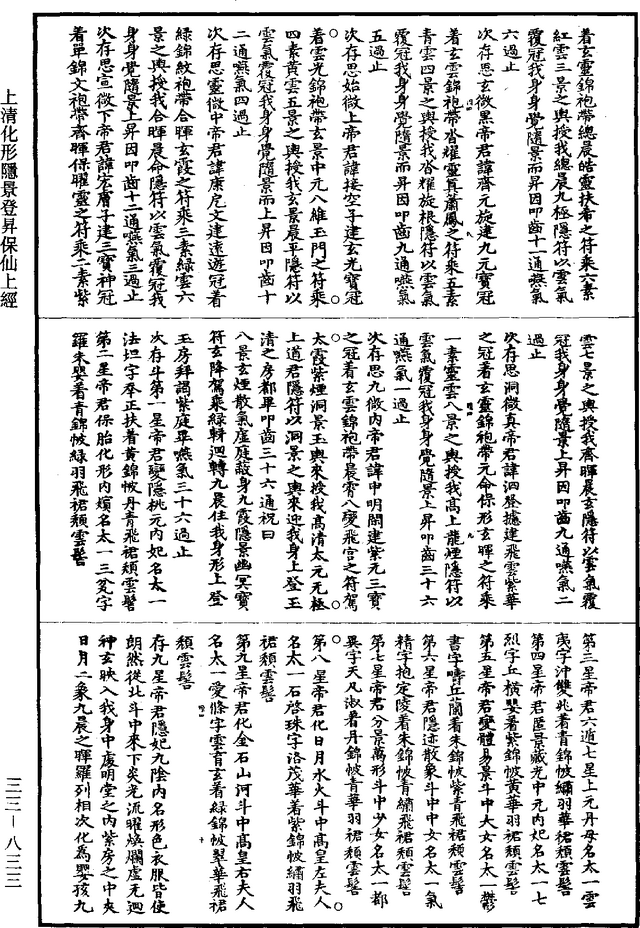 着玄靈錦袍帶總晨皓靈扶希之符乘六素
紅雲三景之輿授我總晨九極隱符以雲氣
覆冠我身身覺隨景而昇因叩齒十一通嚥氣
六過止
次存思玄微黑帝君諱齊元旋建九元寶冠
着玄雲錦袍帶沓耀靈真蕭鳳之符乘五素
青雲四景之輿授我沓耀旋根隱符以雲氣
覆冠我身身覺隨景而昇因叩齒九通嚥氣
五過止
次存思始微上帝君諱接空子建玄光寶冠
着雲光錦袍帶玄景中元八維玉門之符乘
四素黃雲五景之輿授我玄景晨平隱符以
雲氣覆冠我身身覺隨景而上昇因叩齒十
二通嚥氣四過止
次存思靈微中帝君諱康尼文建遠遊冠着
綠錦紋袍帶合暉玄霞之符乘三素綠雲六
景之輿授我合暉晨命隱符以雲氣覆冠我
身身覺隨景上昇因叩齒十二通嚥氣三過止
次存思宣微下帝君諱宏膚子建三寶神冠
着單錦文袍帶齊暉保曜靈之符乘二素紫
雲七景之輿授我齊暉晨玄隱符以雲氣覆
冠我身身覺隨景上昇因叩齒九通嚥氣二
過止
次存思洞微真帝君諱泗澄擿建飛雲紫華
之冠着玄靈錦袍帶元命保形玄暉之符乘
一素靈雲八景之輿授我高上龍煙隱符以
雲氣覆冠我身身覺隨景上昇叩齒三十六
通嚥氣一過止
次存思九微内帝君諱申明閞建紫元三寶
之冠着玄雲錦袍帶晨霄八變飛宫之符駕
太霞紫煙洞景玉輿來授我高清太元无極
上道君隱符以洞景之輿來迎我身上登玉
清之房都畢叩齒三十六通祝曰
八景玄煙散氣虛庭蔽身九霞隱景幽冥寶
符玄降駕乘綠軿迴轉九晨住我身形上登
玉房拜謁紫庭畢嚥氣三十六過止
次存斗第一星帝君變隱桃元内妃名太一
法坦字奉正扶着黃錦帔丹青飛裙頹雲髻
第二星帝君保胎化形内嬪名太一三炁字
羅朱嬰着青錦帔綠羽飛裙頹雲髻
第三星帝君六遁七星上元丹母名太一雲
夷字沖雙兆着青錦帔繡羽華裙頹雲髻
第四星帝君匿景藏光中元内妃名太一七
烈字丘横斐着紫錦帔黃華羽裙頹雲髻
第五星帝君變體易景斗中大女名太一鬱
書字嚋丘蘭着朱錦帔紫青飛裙頹雲髻
第六星帝君隱迹散象斗中中女名太一氣
精字抱定陵着朱錦帔青繡飛裙頹雲髻
第七星帝君分景萬形斗中少女名太一都
異字天凡淑着丹錦帔青華羽裙頹雲髻
第八星帝君化日月水火斗中高皇左夫人
名太一石啓珠字洛茂華着紫錦帔繡羽飛
裙頹雲髻
第九星帝君化金石山河斗中高皇右夫人
名太一愛條字雲育玄着綠錦帔翠華飛裙
頹雲髻
存九星帝君隱妃九陰内名形色衣服皆使
朗然從北斗中來下炎光流曜煥爛虛无迴
神玄映入我身中處明堂之内紫房之中夾
日月二象九晨之暉羅列相次化為嬰孩九
上清化形隱景登昇保仙上經
三三－八三三